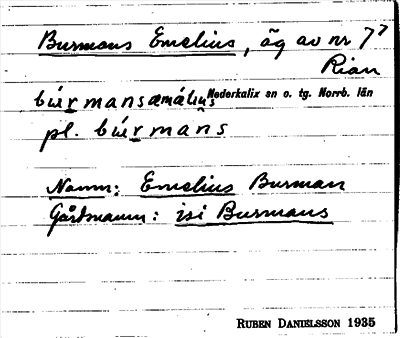 Burmans Emelius, äg av nr 7⁷
Rian
búrmansæmálius Nederkalix sn o. tg. Norrb. län
pl. búrmans
Namn: Emelius Burman
Gårdnamn: isi Burmans
RUBEN DANIELSSON 1935